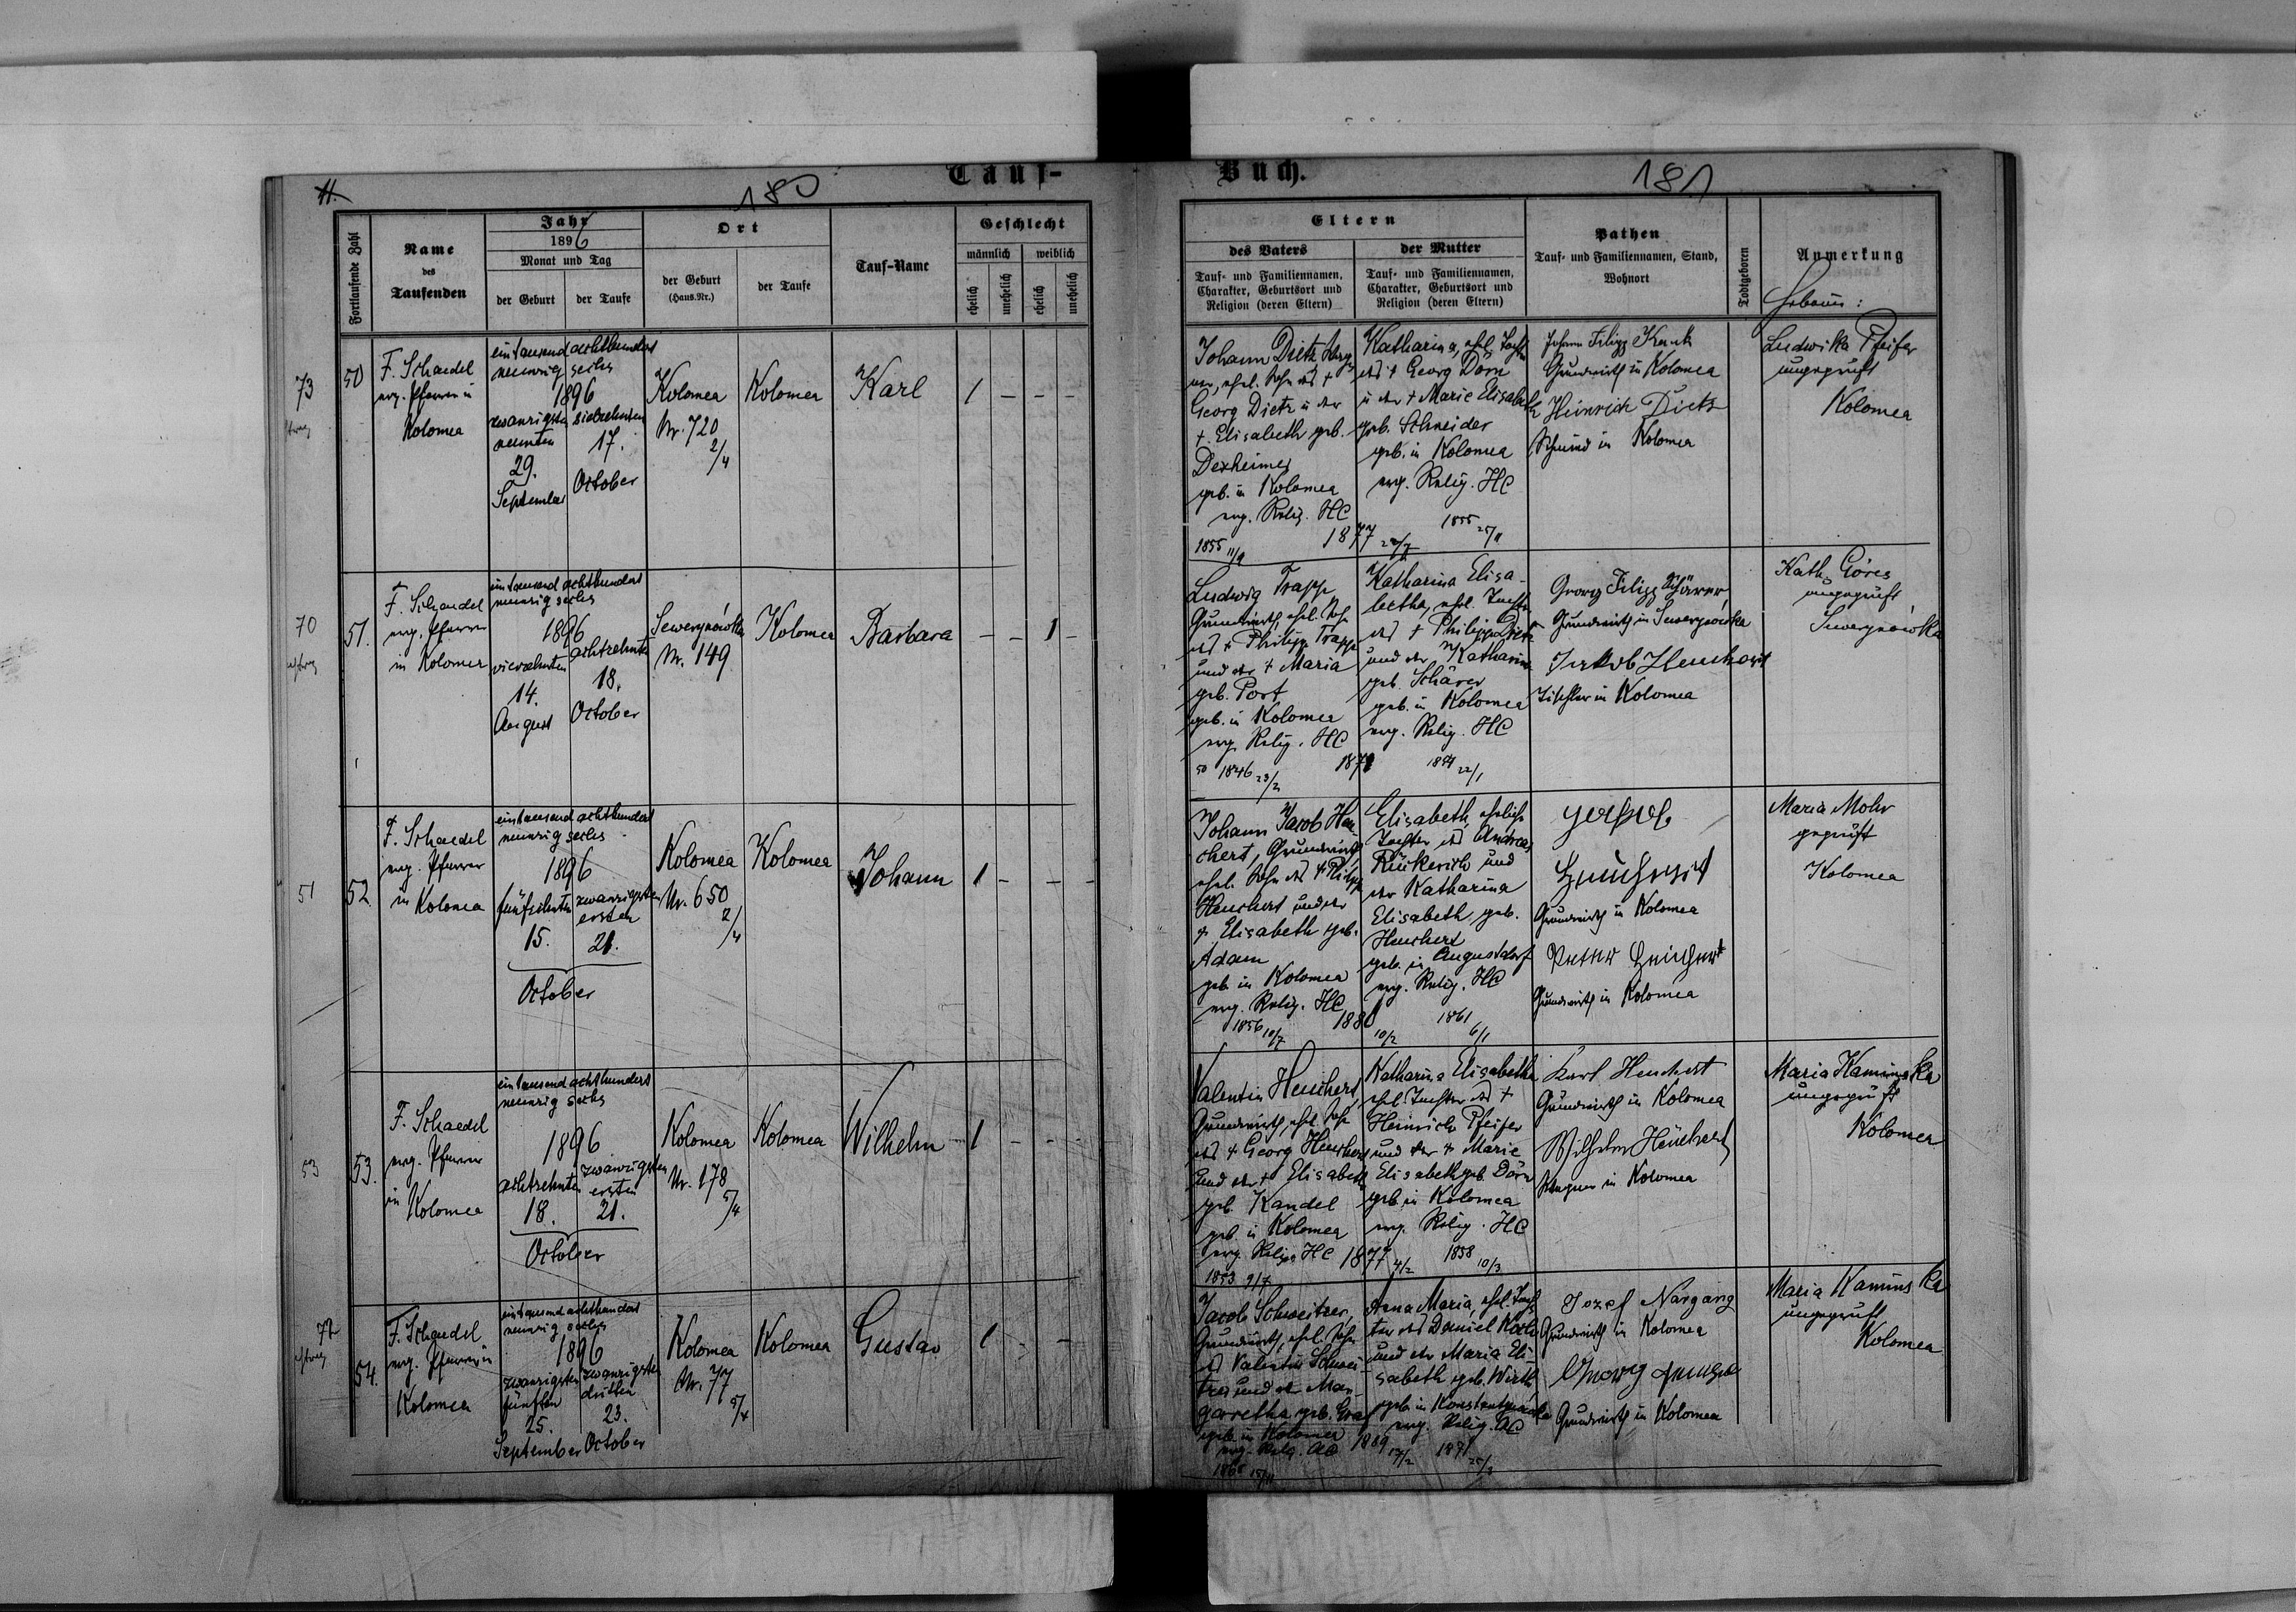 Tauf-
Buch.
180
181
Fortlaufende Zahl
Name
des
Taufenden
Jahr
1896
Monat und Tag
der Geburt
der Taufe
Ort
der Geburt
(Haus-Nr.)
der Taufe
Tauf-Name
Geschlecht
männlich
weiblich
ehelich
unehelich
ehelich
unehelich
Eltern
des Vaters
Tauf- und Familiennamen,
Charakter, Geburtsort und
Religion (deren Eltern)
der Mutter
Tauf- und Familiennamen,
Charakter, Geburtsort und
Religion (deren Eltern)
Pathen
Tauf- und Familiennamen, Stand,
Wohnort
Todtgeboren
Anmerkung
73
50
F. Schaedel
evg. Pfarrer in
Kolomea
eintausend achthundert
neunzig sechs
1896
zwanzigsten
neunten
29.
September
siebzehnten
17.
October
Kolomea
Nr. 720
2/4
Kolomea
Karl
1 - - -
Johann Dietz
ehel. Sohn des +
Georg Dietz u der
+ Elisabeth geb.
Dexheimer
geb. in Kolomea
evg. Relig. HC
1855 11/9
1877 22/7
Katharina, ehel. Tocht
des + Georg Dörn
u der + Marie Elisabeth
geb. Schneider
geb. in Kolomea
evg. Relig. HC
1855 25/11
Johann Filipp Kunk
Grundwirth in Kolomea
Heinrich Dietz
Schmied in Kolomea
Ludwika Pfeifer
ungeprüft
Kolomea
70
51.
F. Schaedel
evg. Pfarrer
in Kolomea
eintausend achthundert
neunzig sechs
1896
vierzehnten
14.
August
achtzehnten
18.
October
Sewerynówka
Nr. 149
Kolomea
Barbara
- - 1 -
Ludwig Trapp
Grundwirth, ehel. Sohn
des + Philipp Trapp
und der + Maria
geb. Port
geb. in Kolomea
evg. Relig. HC
50 1846 23/2
Katharina Elisa-
betha, ehel. Tochter
des + Philipp Dietz
und der Katharina
geb. Schärer
geb. in Kolomea
evg. Relig. HC
22/1
Georg Filipp Schärer,
Grundwirth in Sewerynówka
Jakob Heuchert
Tischler in Kolomea
Kath. Göres
ungeprüft
Sewerynówka
51
52.
F. Schaedel
evg. Pfarrer
in Kolomea
eintausend achthundert
neunzig sechs
1896
fünfzehnten
15.
zwanzigsten
ersten
21.
October
Kolomea
Nr. 650
2/4
Kolomea
Johann
1 - - -
Johann Jacob Heu-
chert, Grundwirth,
ehel. Sohn des + Philipp
Heuchert und der
+ Elisabeth geb.
Adam
geb. in Kolomea
evg. Relig. HC
1856 10/7
1880 10/2
Elisabeth, eheliche
Tochter des Andreas
Rückerich und
der Katharina
Elisabeth, geb.
Heuchert
geb. in Augustdorf
evg. Relig. HC
1861 6/1
Heuchert
Grundwirth in Kolomea
Peter Heuchert
Grundwirth in Kolomea
Maria Mohr
geprüft
Kolomea
53
53.
F. Schaedel
evg. Pfarrer
in
Kolomea
eintausend achthundert
neunzig sechs
1896
achtzehnten
18.
zwanzigsten
ersten
21.
October
Kolomea
Nr. 178
5/4
Kolomea
Wilhelm
1 - - -
Valentin Heuchert,
Grundwirth, ehel. Sohn
des + Georg Heuchert
und der + Elisabeth
geb. Kandel
geb. in Kolomea
evg. Relig. HC
1853 9/7
1877 4/2
Katharina Elisabetha
ehel. Tochter des +
Heinrich Pfeifer
und der + Marie
Elisabeth geb. Dörn
geb. in Kolomea
evg. Relig. HC
1858 10/3
Karl Heuchert
Grundwirth in Kolomea
Wilhelm Heuchert
Wagner in Kolomea
Maria Kaminska
ungeprüft
Kolomea
72
54.
F. Schaedel
evg. Pfarrer in
Kolomea
eintausend achthundert
neunzig sechs
1896
zwanzigsten
fünften
25.
September
zwanzigsten
dritten
23.
October
Kolomea
Nr. 77
5/4
Kolomea
Gustav
1 - -
Jacob Schweitzer,
Grundwirth, ehel. Sohn
des Valentin Schwei-
tzer und der Mar-
garetha geb. Graf
geb. in Kolomea
evg. Relig. AC
15/11
1889 17/2
Anna Maria, ehel. Toch-
ter des Daniel
und der Maria Eli-
sabeth geb. Wirth
geb. in Konstantynówka
evg. Relig. AC
1871 25/3
Jozef Nargang
Grundwirth in Kolomea
Georg
Grundwirth in Kolomea
Maria Kaminska
ungeprüft
Kolomea